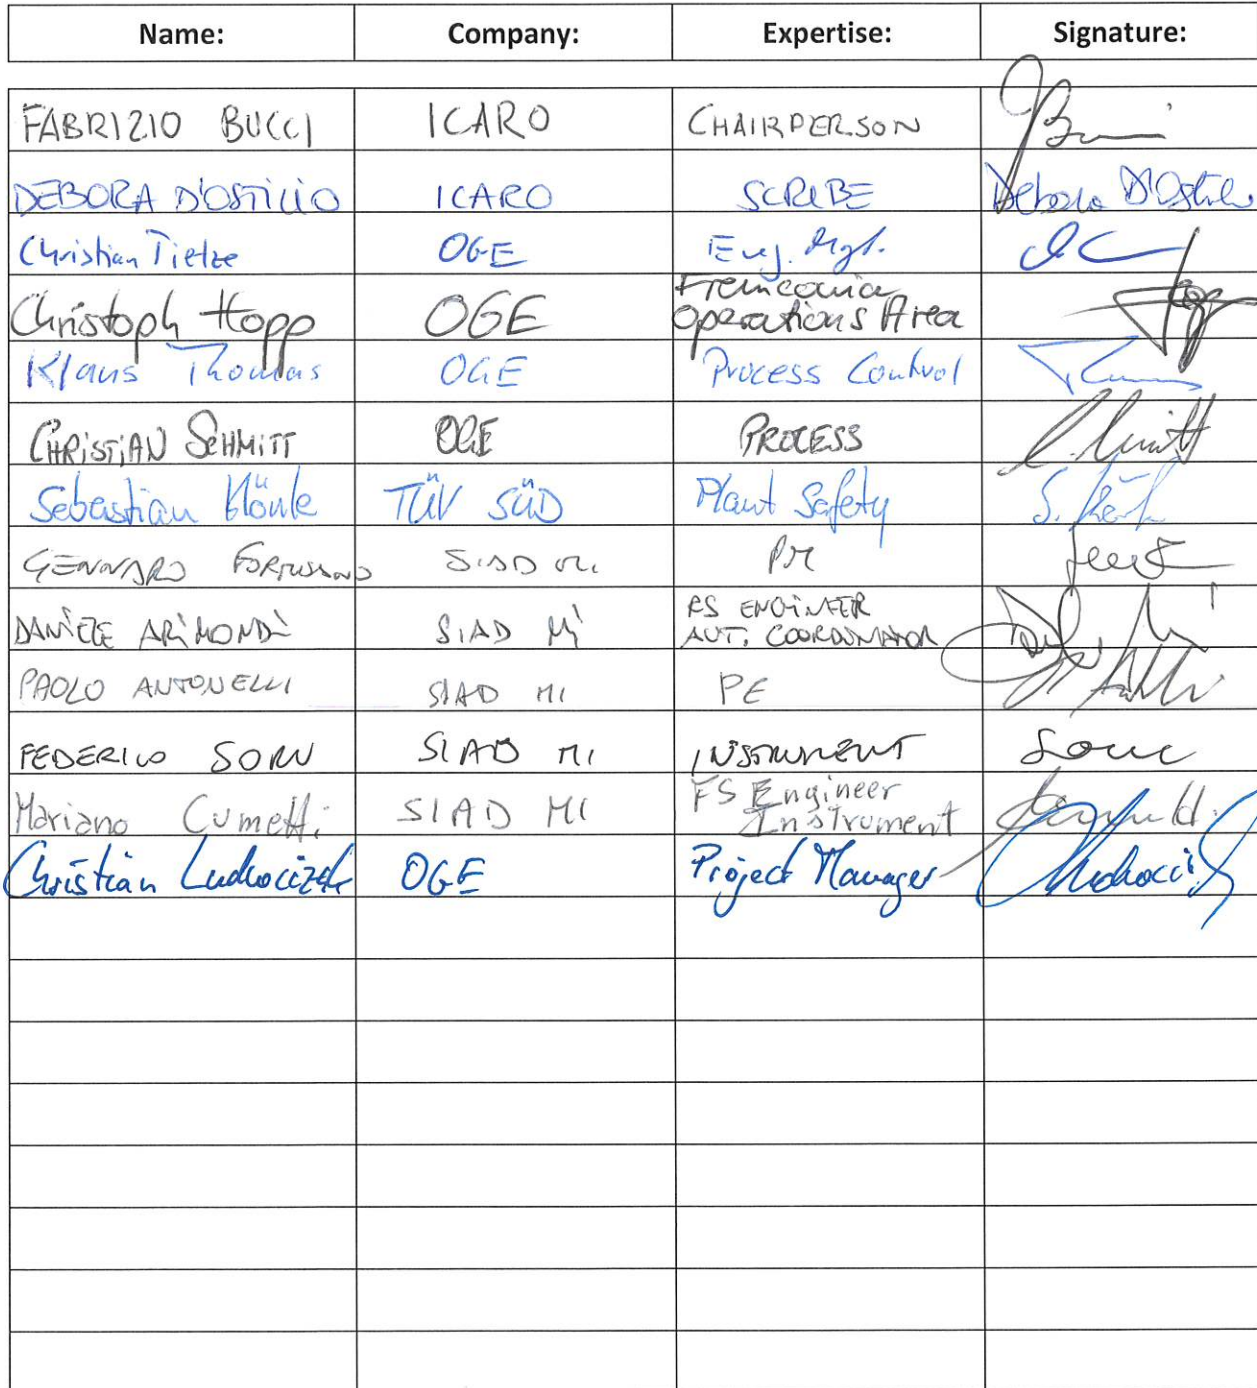 Name: Company: Expertise: Signature:
FABRIZIO BUCCI ICARO CHAIRPERSON
DEBORA D'OSTILIO ICARO SCRIBE Debora D'Ostilio
Christian Tietze OGE Eng. Mgt.
Christoph Hopp OGE Franconia
Operations Area
Klaus Thomas OGE Process Control
CHRISTIAN SCHMITT OGE PROCESS C. Schmitt
Sebastian TÜV SÜD Plant Safety
GENNARO FORTUNATO SIAD MI PM
DANIELE ARIMONDI SIAD Mi ENGINEER
AUT. COORDINATOR
PAOLO ANTONELLI SIAD MI PE
FEDERICO SORN SIAD MI INSTRUMENT
Mariano Cumetti SIAD MI FS Engineer
Instrument
Christian OGE Project Manager